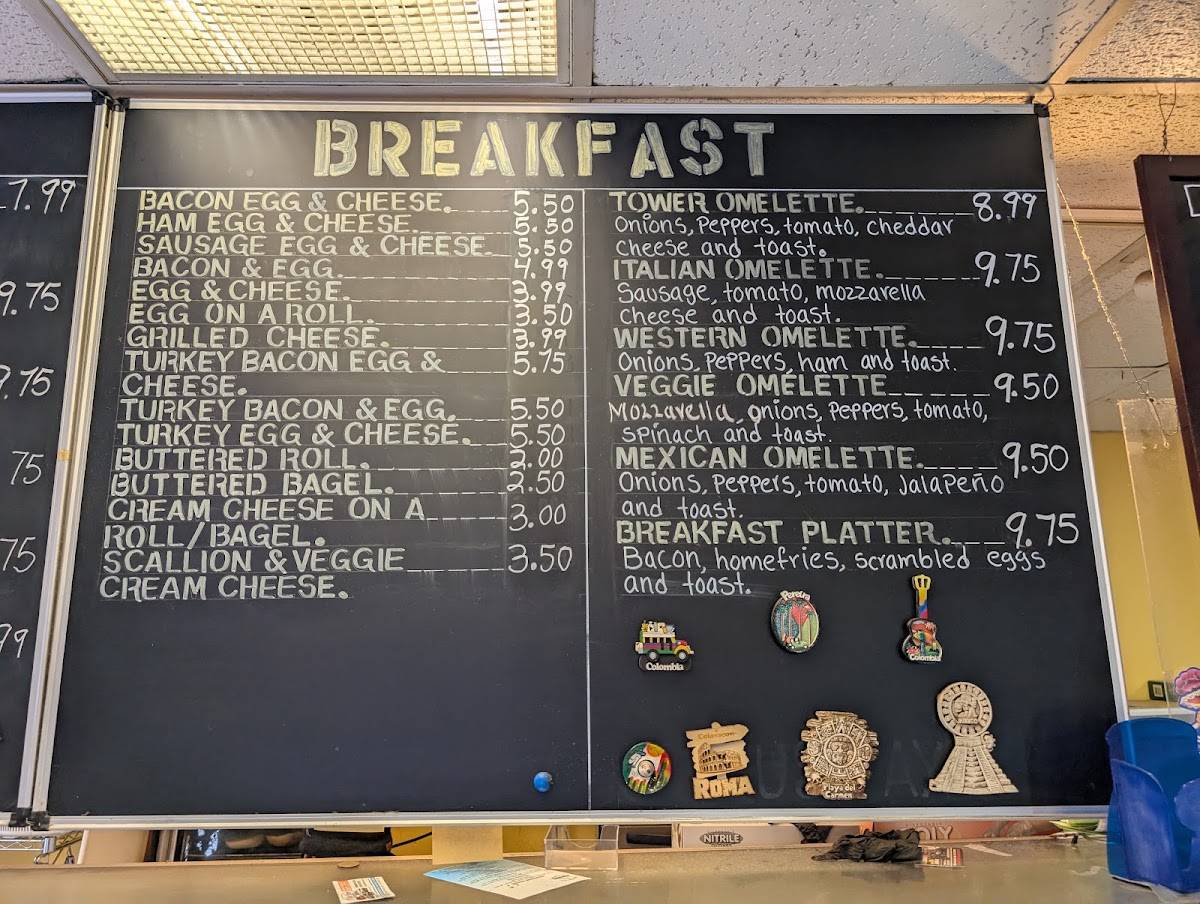 7.99
9.75
9.75
75
75
99
BREAKFAST
BACON EGG & CHEESE. 5.50
HAM EGG & CHEESE. 5.50
SAUSAGE EGG & CHEESE. 5.50
BACON & EGG. 4.99
EGG & CHEESE. 3.99
EGG ON A ROLL. 3.50
GRILLED CHEESE. 3.99
TURKEY BACON EGG & 5.75
CHEESE.
TURKEY BACON & EGG. 5.50
TURKEY EGG & CHEESE. 5.50
BUTTERED ROLL. 2.00
BUTTERED BAGEL. 2.50
CREAM CHEESE ON A 3.00
ROLL/BAGEL.
SCALLION & VEGGIE 3.50
CREAM CHEESE.
TOWER OMELETTE. 8.99
Onions, Peppers, tomato, cheddar
cheese and toast.
ITALIAN OMELETTE. 9.75
Sausage, tomato, mozzarella
cheese and toast.
WESTERN OMELETTE. 9.75
Onions, Peppers, ham and toast.
VEGGIE OMELETTE 9.50
Mozzarella, onions, Peppers, tomato,
spinach and toast.
MEXICAN OMELETTE. 9.50
Onions, Peppers, tomato, Jalapeño
and toast.
BREAKFAST PLATTER. 9.75
Bacon, homefries, scrambled eggs
and toast.
Pereira
Colombia
Colombia
ROMA
Playa del
Carmen
NITRILE